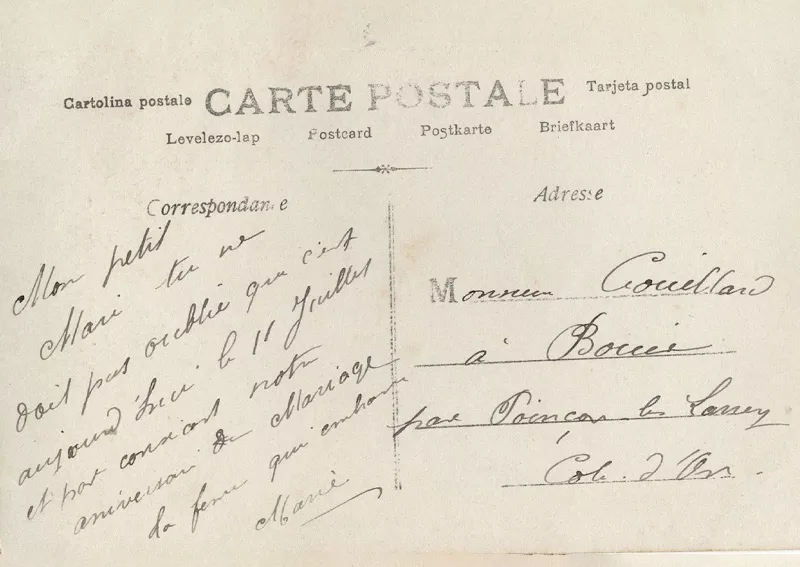 Cartolina postale CARTE POSTALE Tarjeta postal
Levelezo-lap Postcard Postkarte Briefkaart
Correspondance
Adresse
Mon petit
Mari tu ne
doit pas oublié que c'est
aujourd'hui le 11 Juillet
et par consicant notre
aniversair de Mariage
la femme qui embrasse
Marie
Monsieur Couillard
à Boui
par Poinçon les Larrey
Cote d'Or.